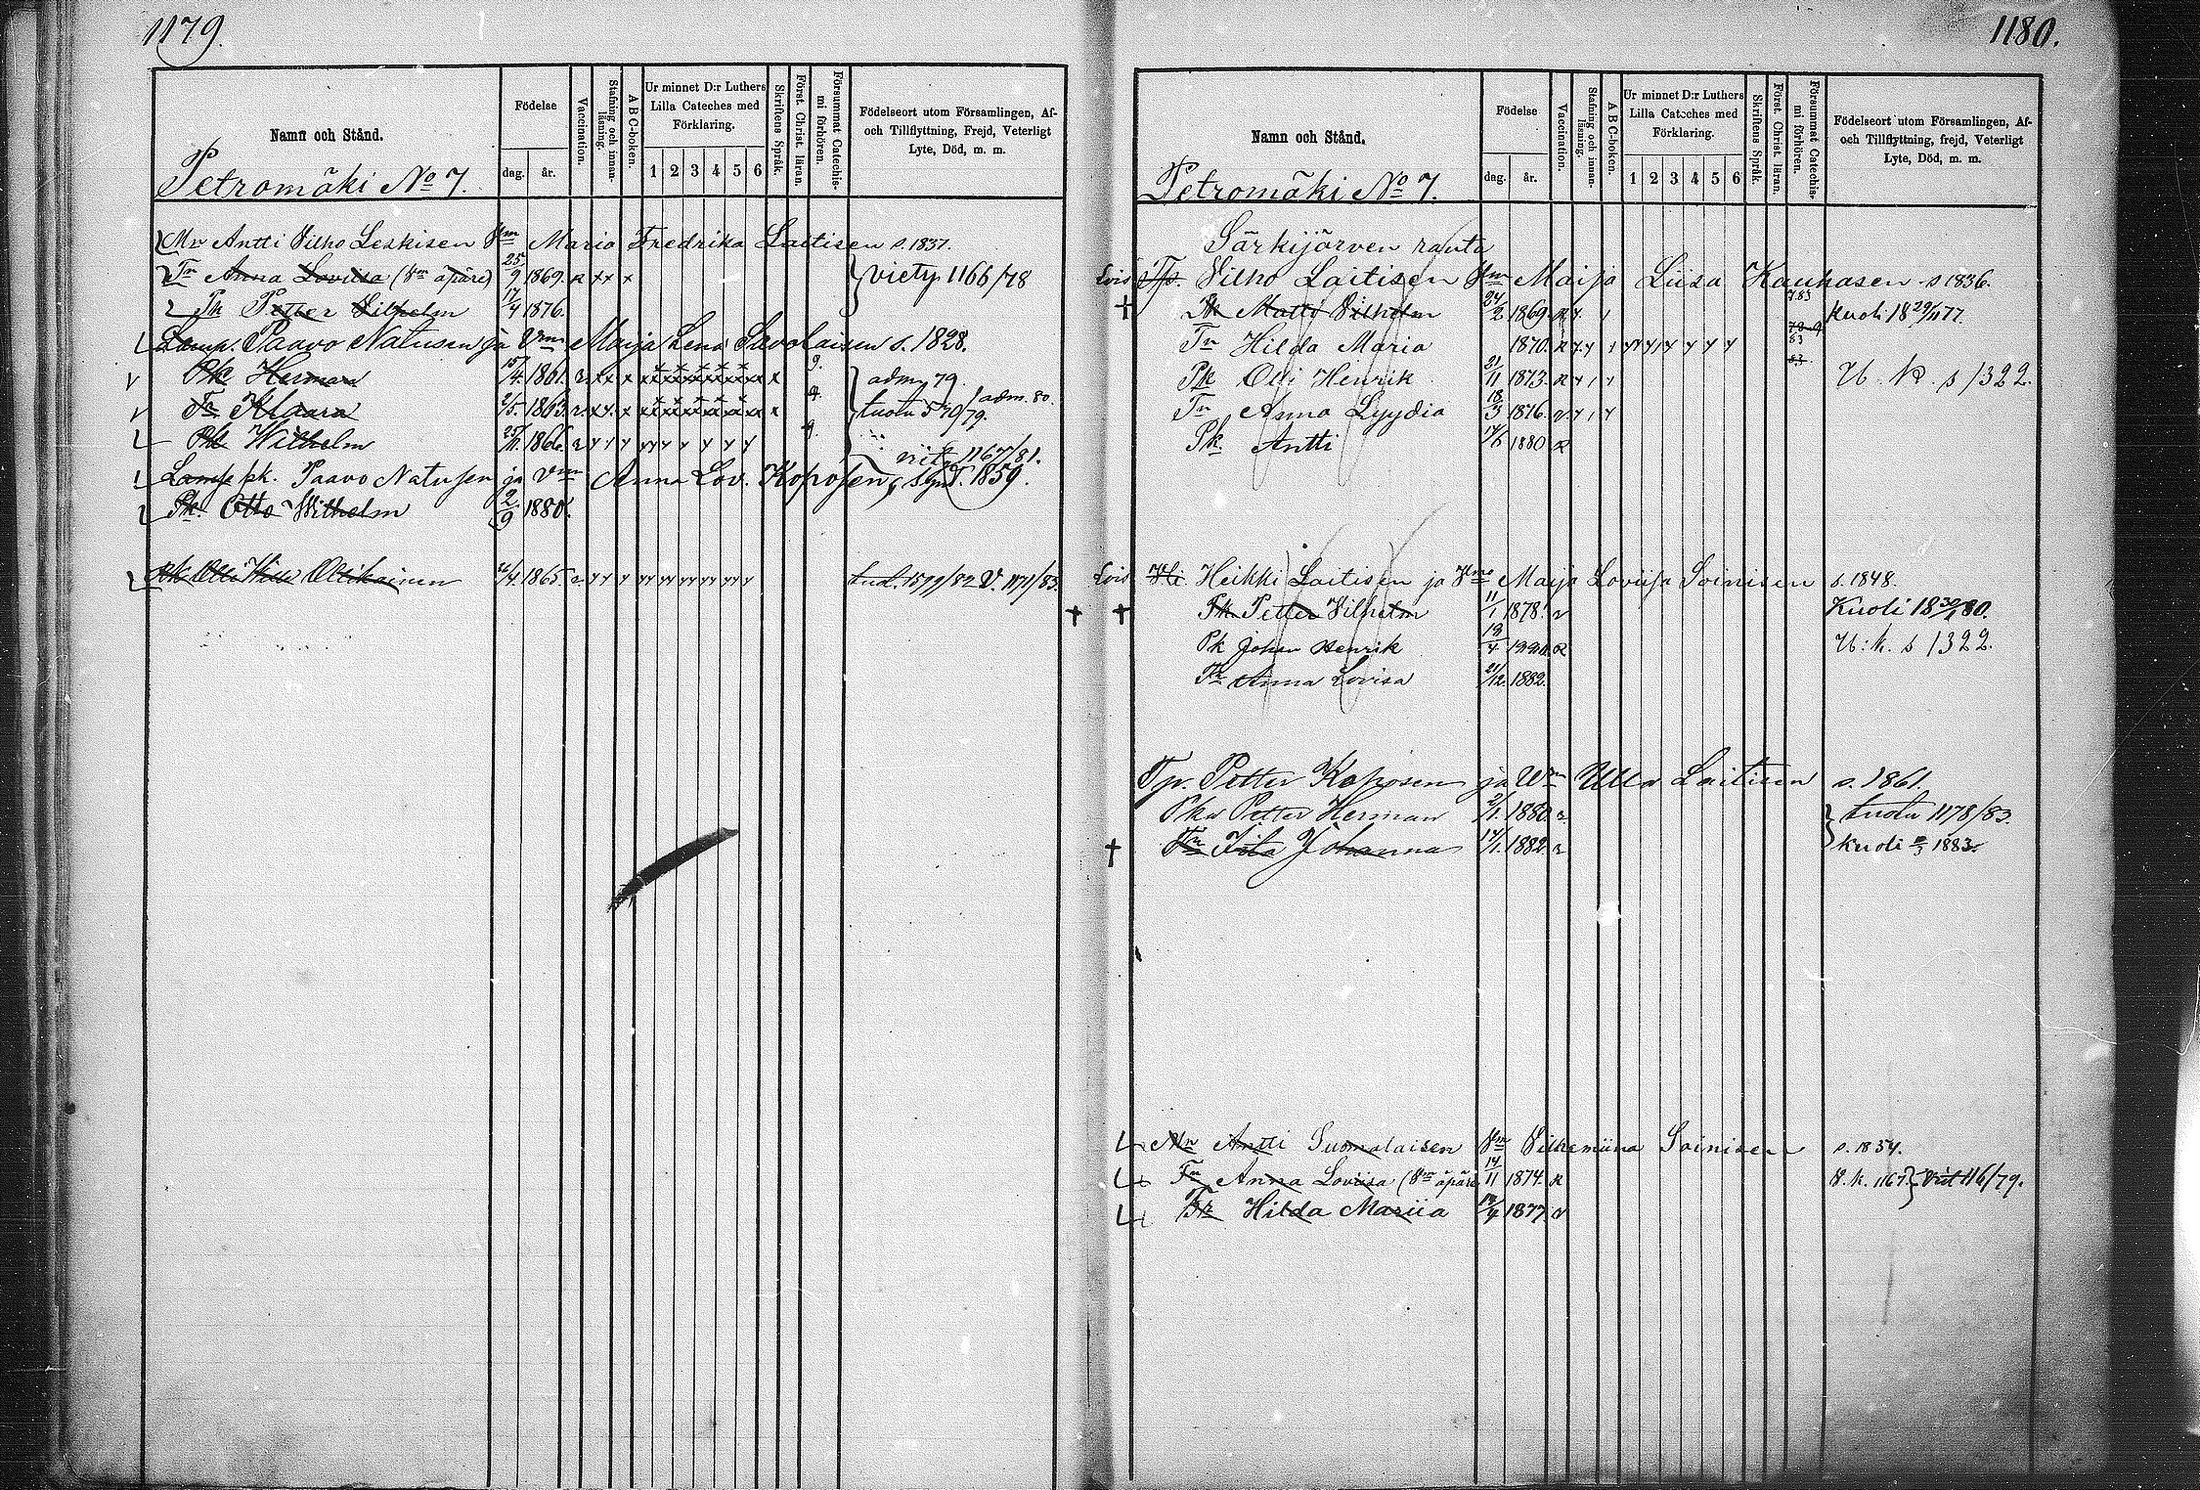 1179.
Namn och Stånd.
Födelse
dag. år.
Vaccination.
Stafning och innanläsning.
A B C-boken.
Ur minnet D:r Luthers Lilla Cateches med Förklaring.
1 2 3 4 5 6
Skriftens Språk.
Först. Christ. läran.
Försummat Catechismi förhören.
Födelseort utom Församlingen, Af-
och Tillflyttning, Frejd, Veterligt
Lyte, Död, m. m.
Petromäki No 7.
Mn Antti Vilho Leskisen Vm Maria Fredrika Laitisen s. 1837.
Tr Anna Loviisa (Vm äpärä) 25/9 1869. R x x x viety 1166/78
Pk Petter Vilhelm 17/4 1876.
Lamp. Paavo Natusen ja Vm Maija Lena Savolaisen s. 1828.
Pk Herman 1861. adm 79.
Tr Klaara 2/5 1863. tuotu 570/79. adm. 80.
Pk Wilhelm 1866. 1167/81.
Lamp pk. Paavo Natusen ja Vm Anna Lov. Koposen, s. 1859.
Pk. Otto Wilhelm 2/9 1880.
Pk Olli Ville Ollikainen 1865. tuol. 1599/82 V. 1171/83.
1180.
Namn och Stånd.
Födelse
dag. år.
Vaccination.
Stafning och innanläsning.
A B C-boken.
Ur minnet D:r Luthers Lilla Cateches med Förklaring.
1 2 3 4 5 6
Skriftens Språk.
Först. Christ. läran.
Försummat Catechismi förhören.
Födelseort utom Församlingen, Af-
och Tillflyttning, frejd, Veterligt
Lyte, Död, m. m.
Petromäki No 7.
Särkijärven ranta
Lois Tp. Vilho Laitisen Vm Maija Liisa Kauhasen s 1836.
Pk Matti Vilhelm 24/2 1869. Kuoli 18 29/11 77.
Tr Hilda Maria 1870.
Pk Olli Henrik 21/11 1873. U. K. s 1322.
Tr Anna Lyydia 18/3 1876.
Pk. Antti 17/6 1880 R
Lois Heikki Laitisen ja Vmo Maija Loviisa Soinisen s. 1848.
Pk Petter Vilhelm 11/1 1878. Kuoli 18 80.
Pk Johan Henrik 19/4 R U: k. s 1322.
Tr Anna Lovisa 21/12. 1882.
Tp. Petter Koposen ja Wm Ulla Laitisen s. 1861.
Pka Petter Herman 2/1. 1880. tuotu 1178/83.
Tr Iita Johanna 17/1. 1882. kuoli 1883.
Mn Antti Suomalaisen Vm Vilhemiina Soinisen s. 1854.
Tr Anna Loviisa (Vm äpärä 14/11 1874. R U. k. 1167. Viet 116/79.
Tr Hilda Mariia 1877